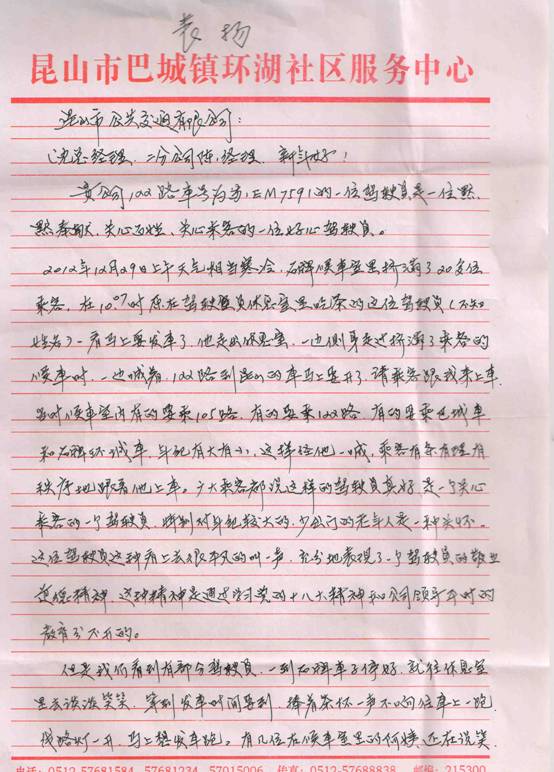 表扬
昆山市巴城镇环湖社区服务中心
昆山市公共交通有限公司：
沈总经理、二分公司陈经理、新年好！
贵公司122路车号为苏EM7591的一位驾驶员是一位默
默奉献、关心百姓、关心乘客的一位好心驾驶员。
2012年12月29日上午天气相当寒冷，石牌候车室里挤满了20多位
乘客，在10:07时原在驾驶员休息室里吃茶的这位驾驶员（不知
姓名）一看马上要发车了，他走出休息室，一边侧身走过挤满了乘客的
候车时，一边喊着，122路到昆山的车马上要开了，请乘客跟我来上车，
当时候车室内有的要乘105路，有的要乘122路，有的要乘巴城车
和石牌环城车，年纪有大有小，这样经他一喊，乘客有条有理有
秩序地跟着他上车。广大乘客都说这样的驾驶员真好，是一个关心
乘客的一个驾驶员，特别对年纪较大的，少出门的老年人是一种关怀。
这位驾驶员这种看上去很平凡的叫一声，充分地表现了一个驾驶员的敬业
道德精神，这种精神是通过学习党的十八大精神和公司领导平时的
教育分不开的。
但是我们看到有部分驾驶员，一到石牌车子停好，就往休息室
里去谈谈笑笑，等到发车时间要到，捧着茶杯一声不响往车上一跑，
找路灯一开，马上想发车跑。有几位在候车室里的阿姨，还在说笑，
电话：0512-57681584 57681234 57015006 传真：0512-57688838 邮编：215300